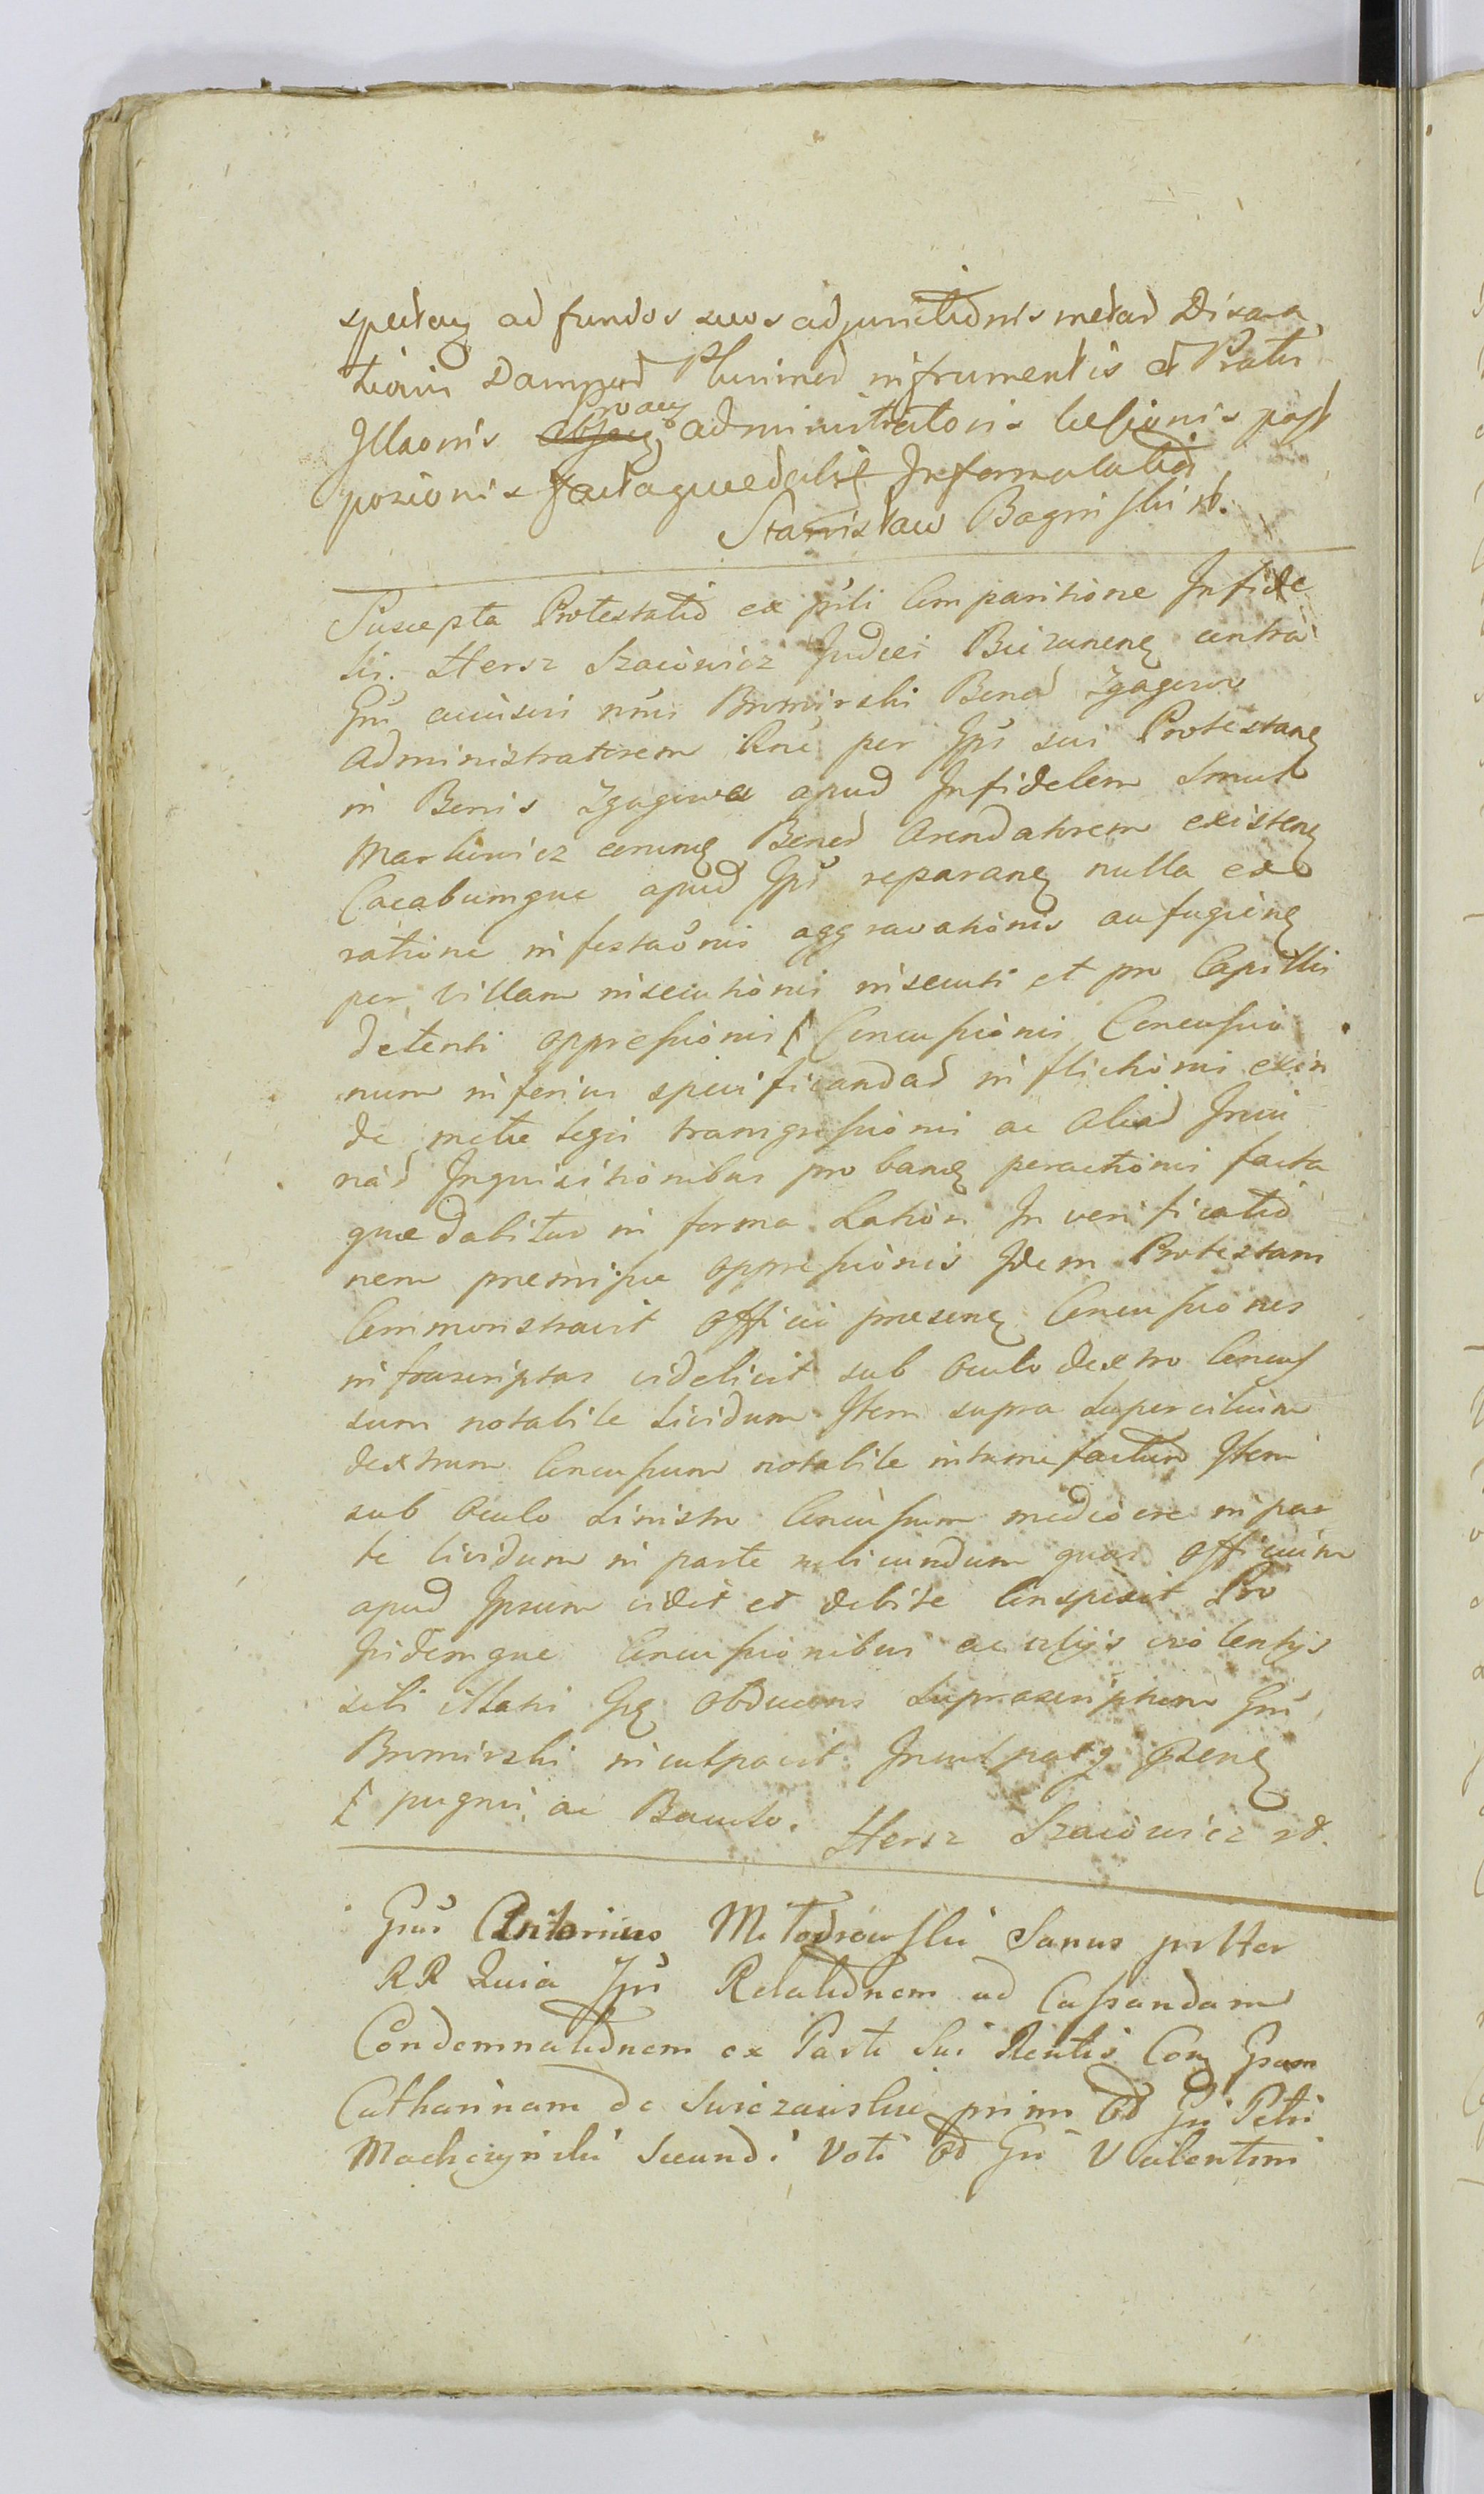 ad fundos suos adjunctionis metar Disara
tionis Damnor Plurimor in frumentis et Pratis
Illaonis administrationis laesionis post
posionis factaquae dabit In forma latio
Stanisław Baginski rt.
Suscepta Protestatio ex pnti Comparitione Infide
lis. Hersz Szaiowicz Judaei Biezunen contra
Gnu nnus Bromirski Bonor Zgagowo
administratorem Rne per Ipsu sui Protestan
in Bonis Zgagowa apud Infidelem Smul
Markiewicz eorum Bonor Arendatorem existen
Cacabumque apud Ipsu reparan nulla ex
ratione infestaonis aggravationis aufugien
per Villam insecutionis insecuti et pro Capillis
detenti oppressionis Concussionis Concussio
num inferius specificandar inflictionis exin
de metu legis transgressionis ac aliar
nar Inquisitionibus proban peractionis facta
quae dabitur in forma Lation In verificatio
nem premissae oppressionis Idem Protestans
Commonstravit Officio presen Concussiones
infrascriptas videlicit sub Oculo dextro Concus
sum notabile lividum Item supra supercilium
dextrum Concussum notabile intumefactum Item
sub Oculo Sinistro Concussum mediocre in par
te lividum in parte rubicundum quas Officium
apud Ipsum vidit et debite Conspexit Pro
Ijsdemque Concussionibus ac alijs violentijs
sibi illatis Obducens Suprascriptum Gnu
Bromirski inculpavit Inculpatq Presen
pugnis ac Baculo. Hersz Szaiowicz rt.
Gnus Antonius Sanus pr tter
RR Quia Ipsu Relationem ad Cassandam
Condemnationem ex Parte Sui Rentis Con Gsam
Catharinam de primi od Gsi Petri
Machczynski Secundi Voti od Gsi Valentini